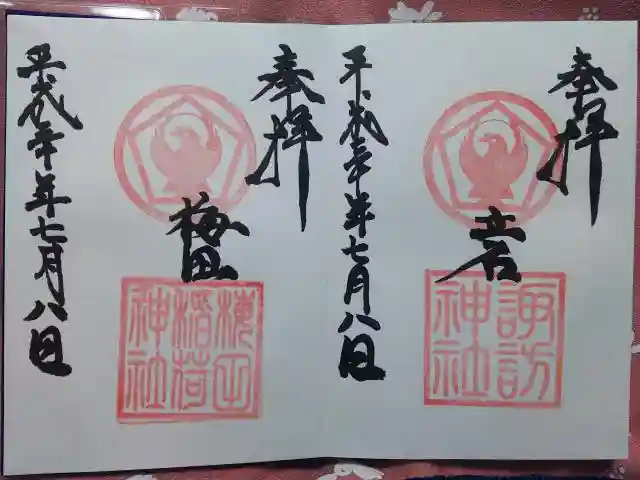 奉拝
諏訪神社
平成三十年七月八日
奉拝
梅田
梅田稲荷神社
平成三十年七月八日